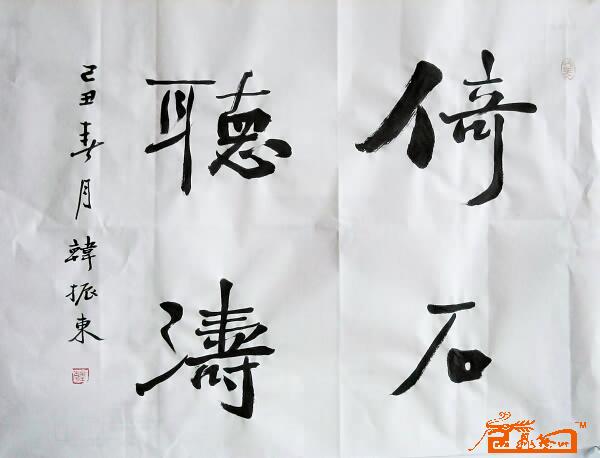 倚石
聽濤
己丑春月 韓振東
TM